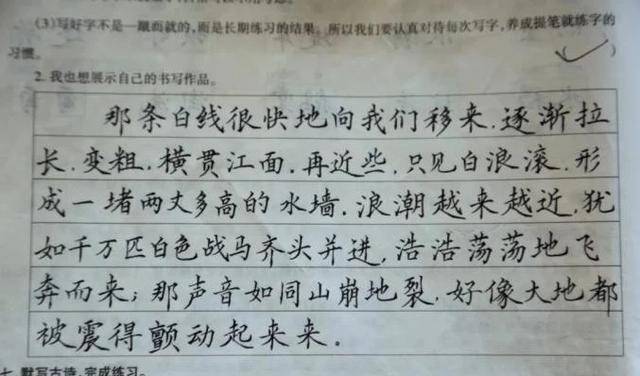 (3)写好字不是一蹴而就的,而是长期练习的结果。所以我们要认真对待每次写字,养成提笔就练字的
习惯。 (✓)
2.我也想展示自己的书写作品。
那条白线很快地向我们移来,逐渐拉
长,变粗,横贯江面,再近些,只见白浪滚,形
成一堵两丈多高的水墙,浪潮越来越近,犹
如千万匹白色战马齐头并进,浩浩荡荡地飞
奔而来;那声音如同山崩地裂,好像大地都
被震得颤动起来来。
七、默写古诗,完成练习。